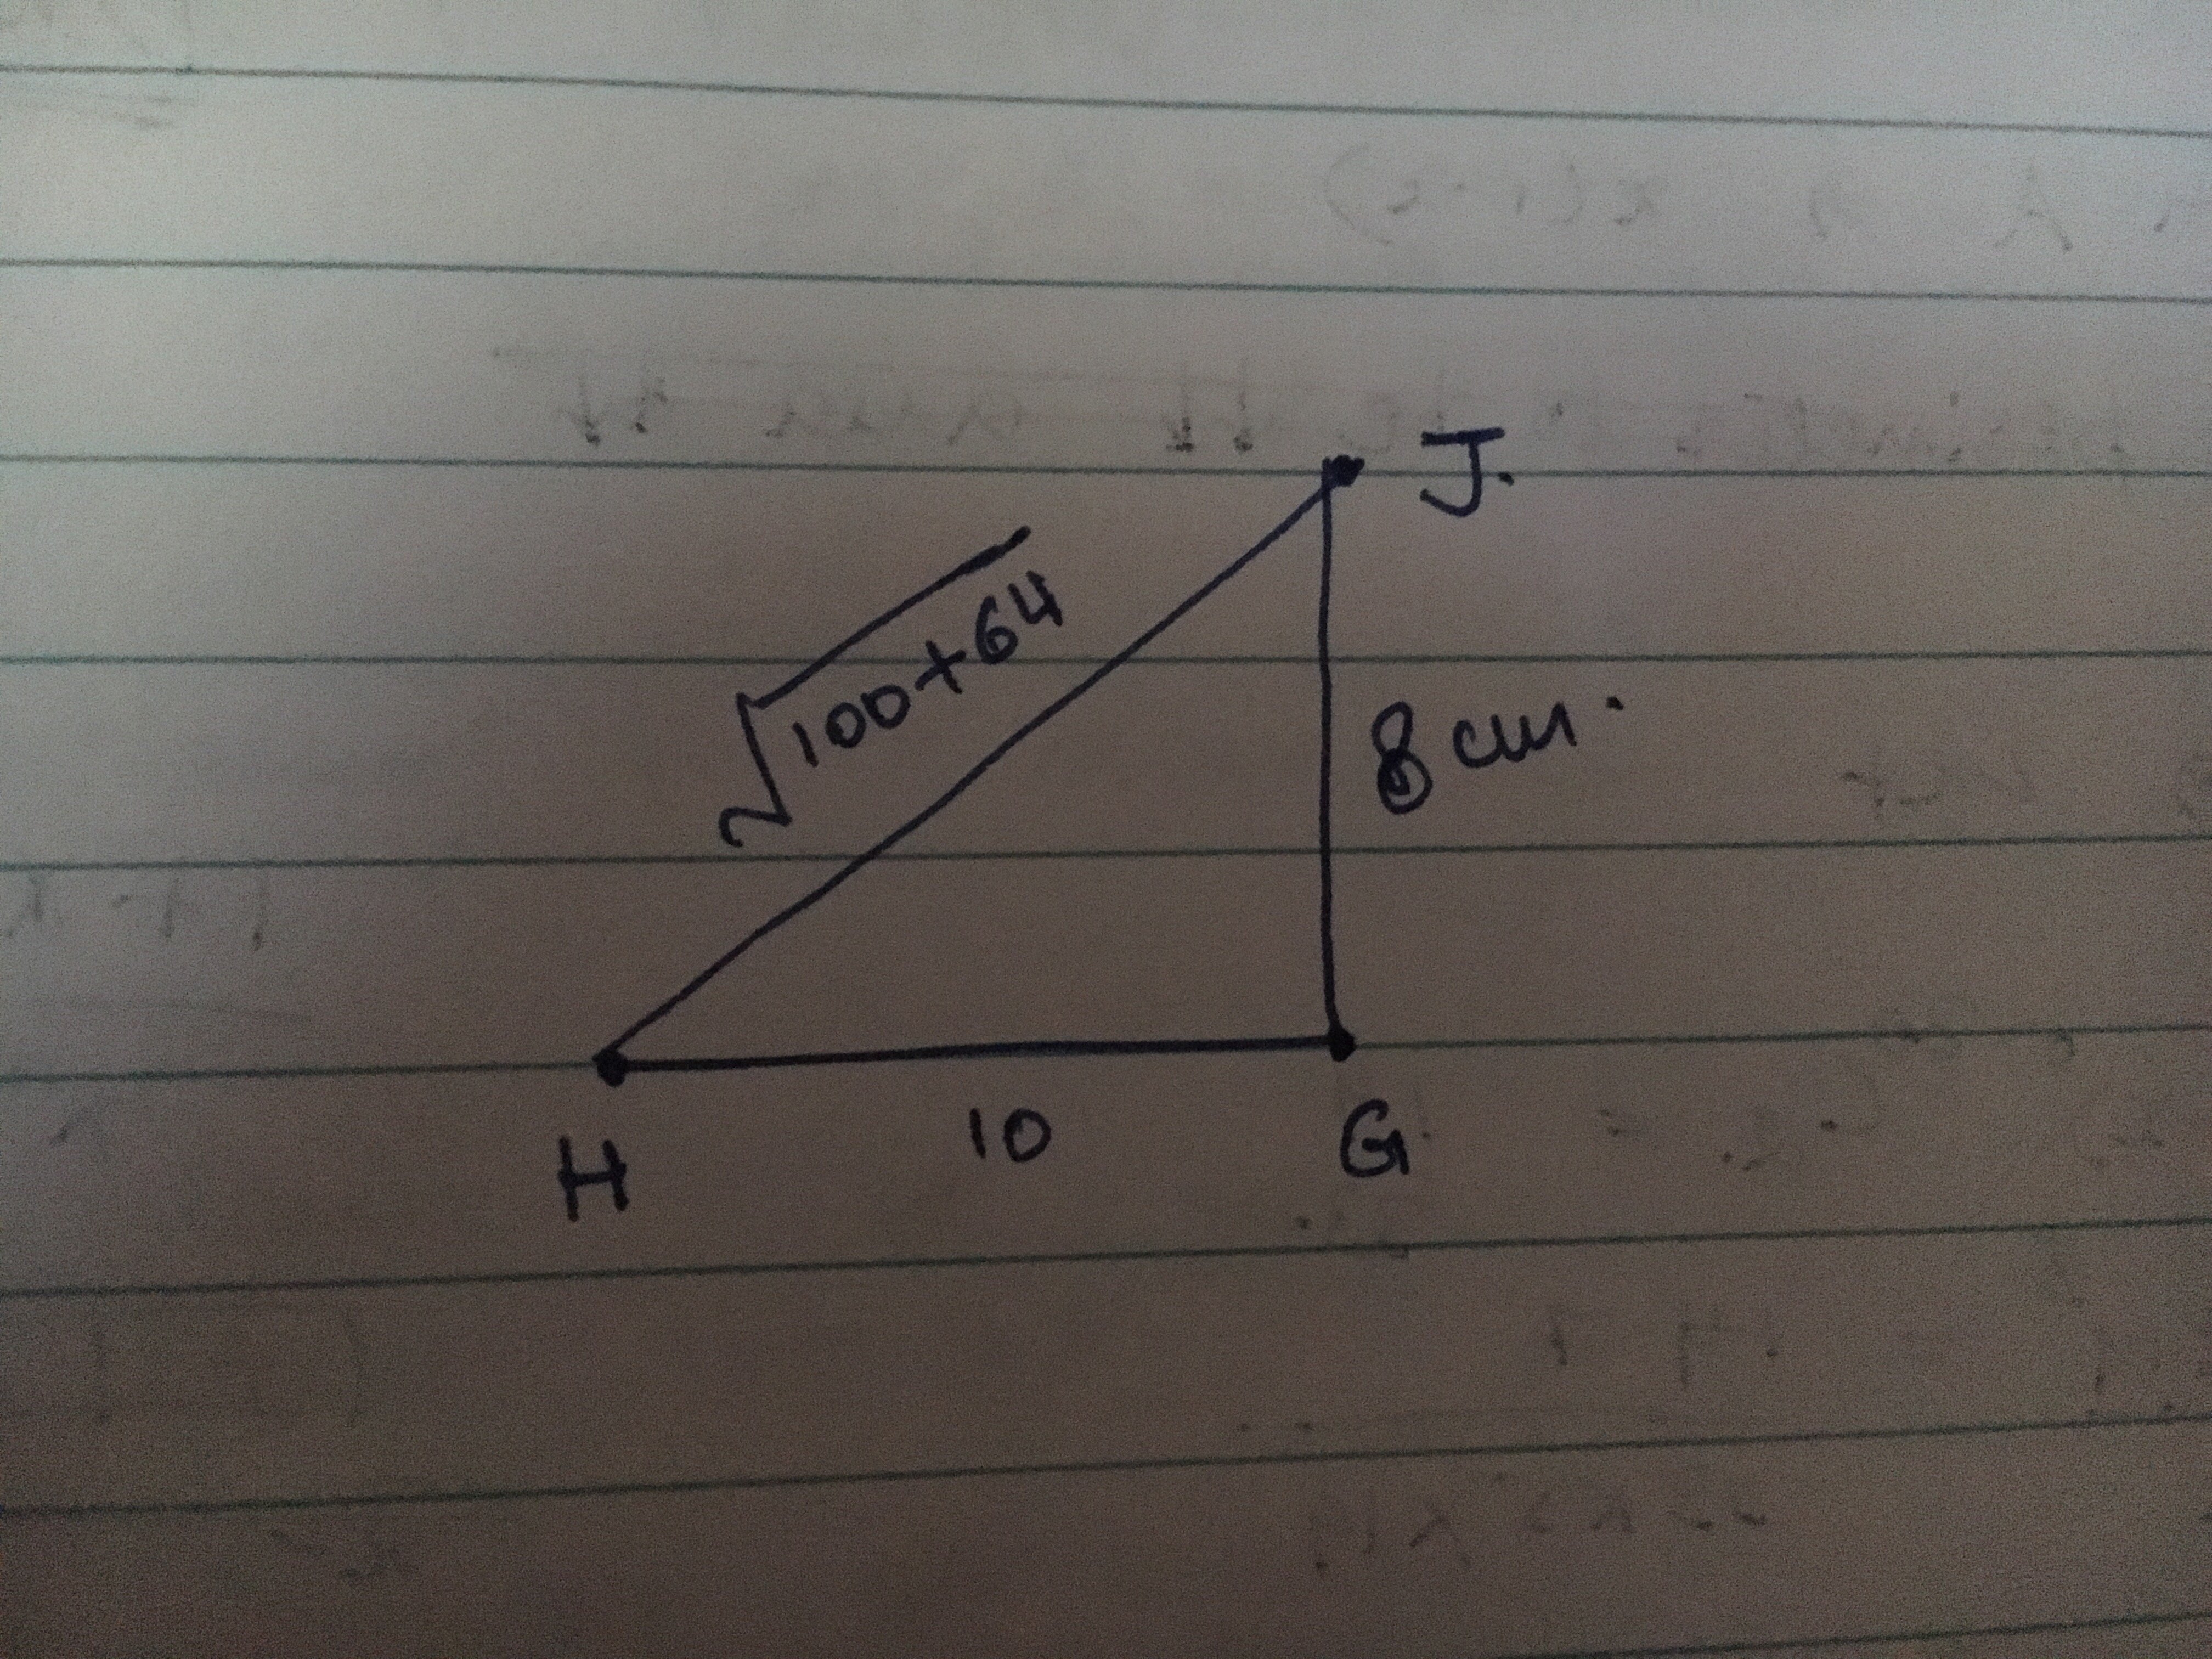 J.
√100+64
8 cm.
10
H
G